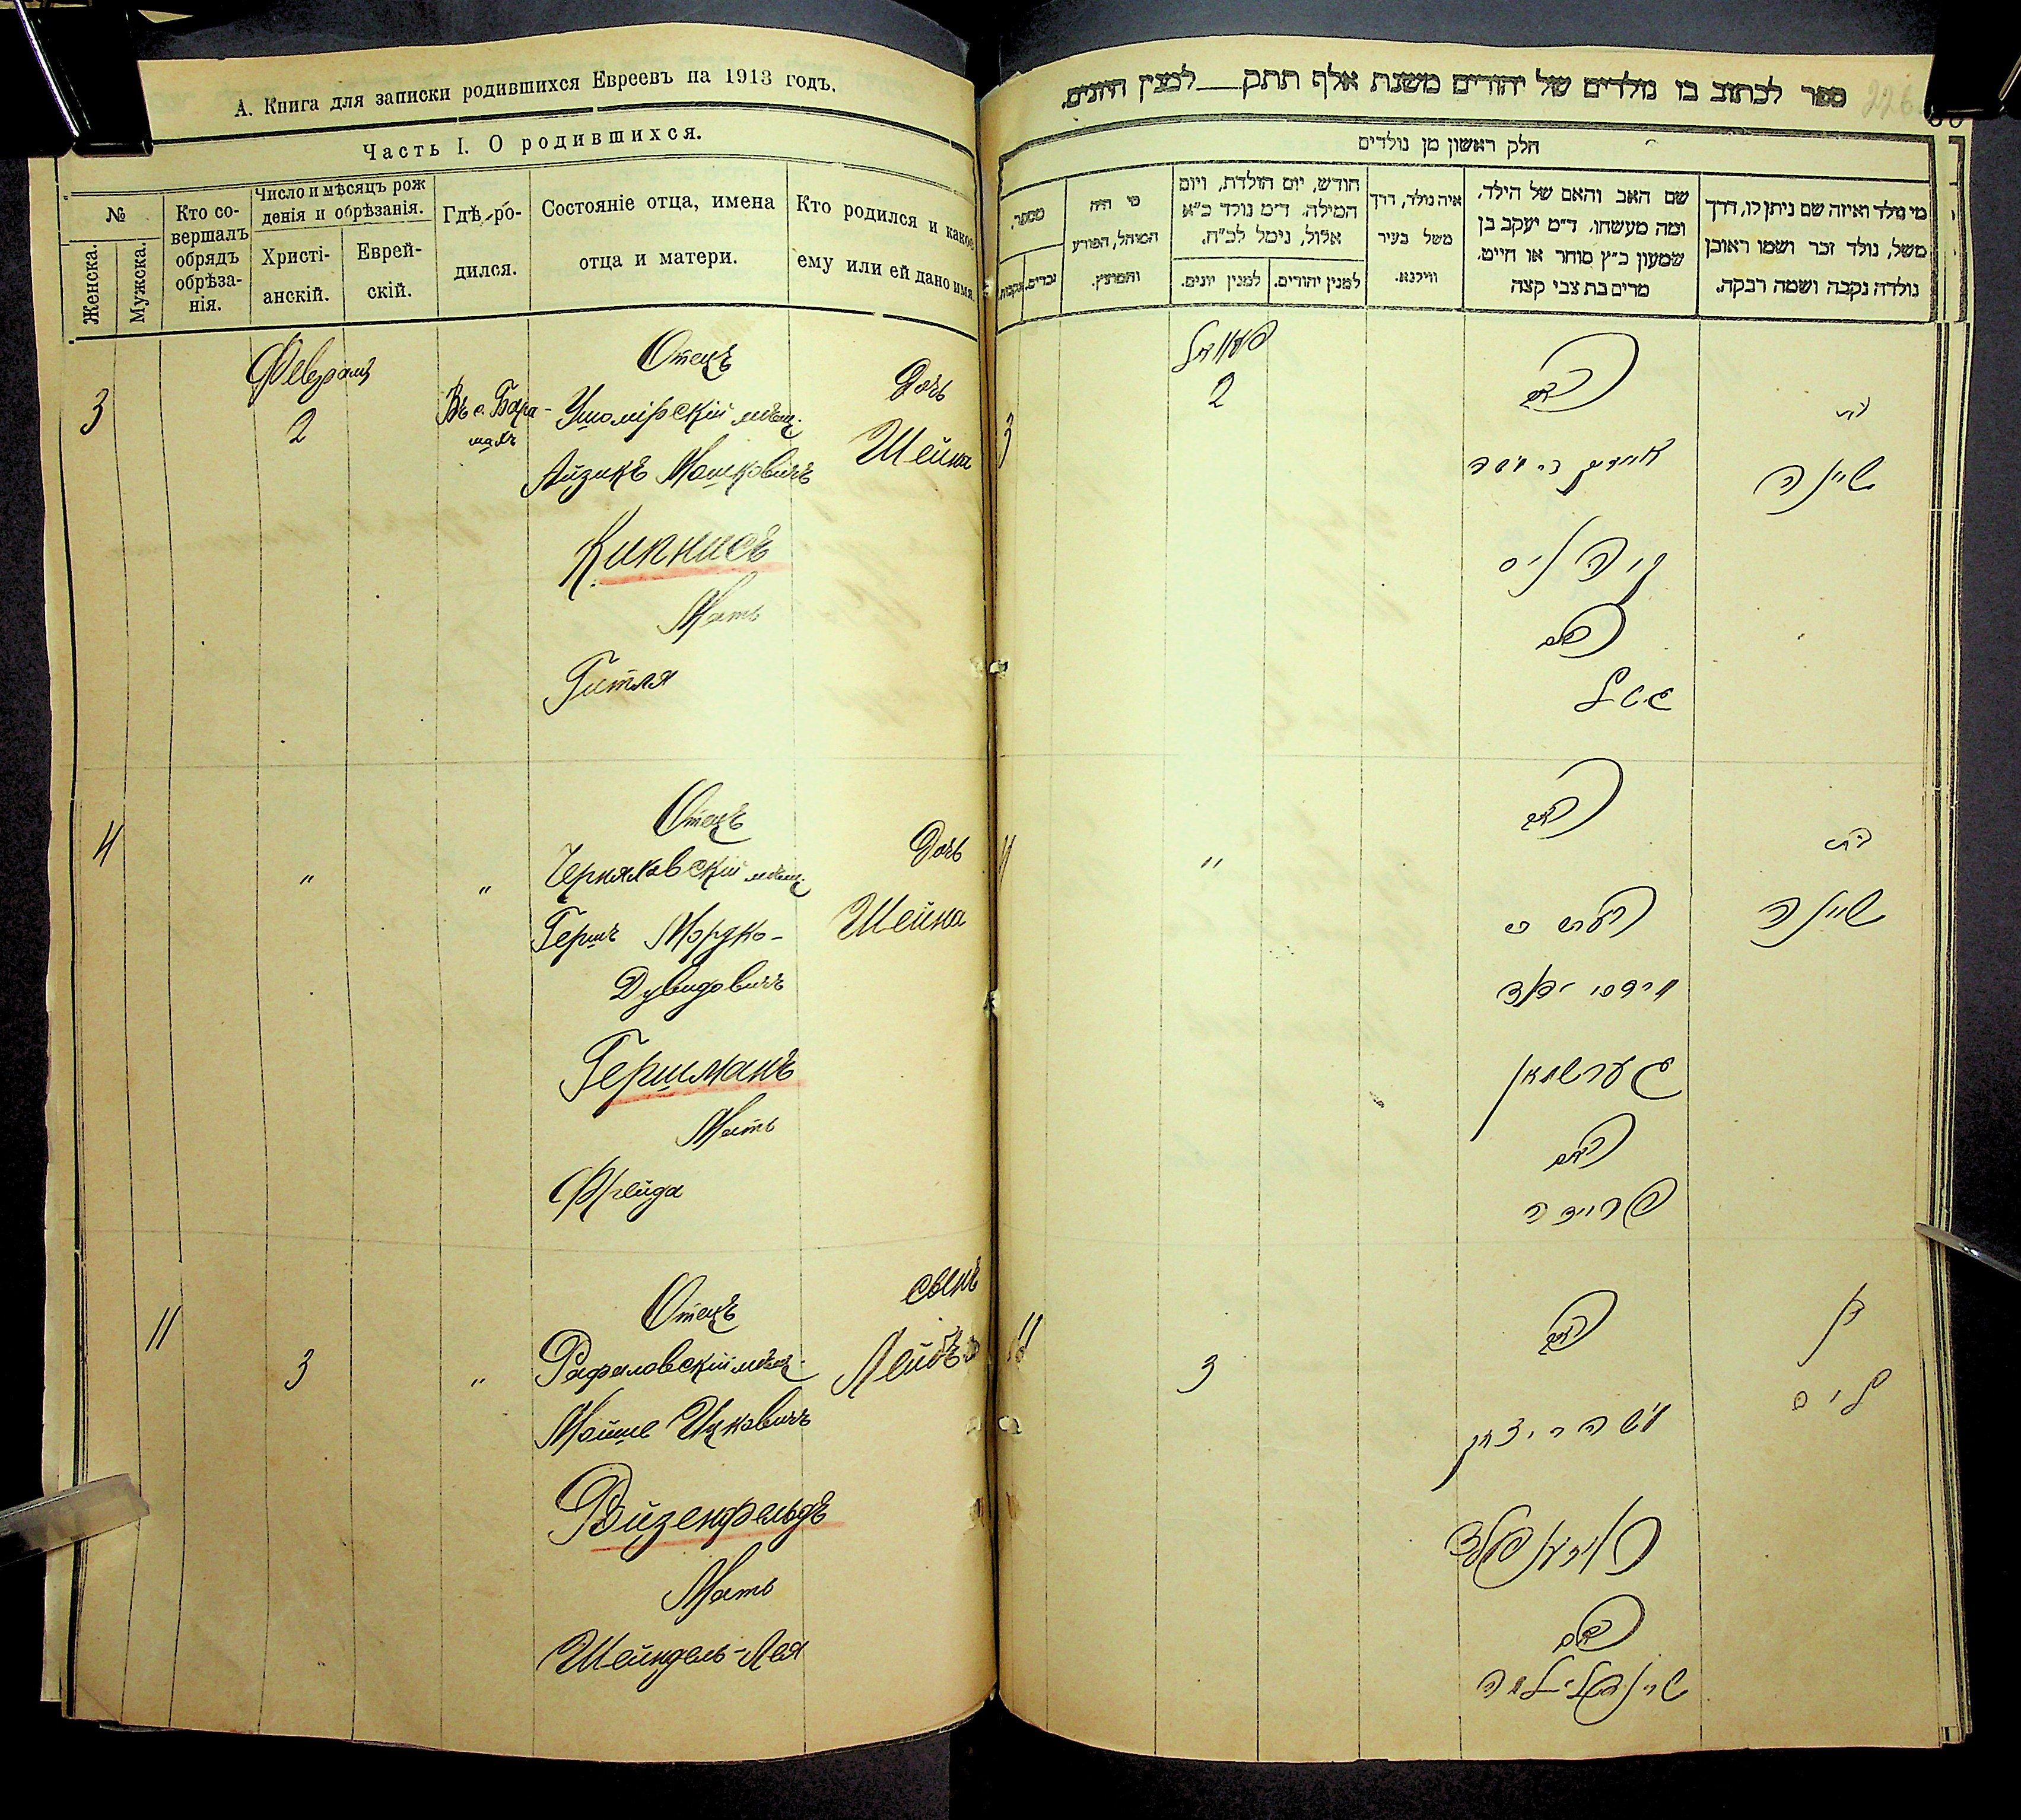 А. Книга для записки родившихся Евреевъ на 1913 годъ.
Часть I. О родившихся.
№
Женска.
Мужска.
Кто со-
вершалъ
обрядъ
обрѣза-
нія.
Число и мѣсяцъ рож
денія и обрѣзанія.
Христі-
анскій.
Еврей-
скій.
Гдѣ ро-
дился.
Состояніе отца, имена
отца и матери.
Кто родился и какое
ему или ей дано имя.
3
Февраль
2
Въ с. Бара-
шахъ
Отецъ
Ушомірскій мѣщ.
Айзикъ Мошковичъ
Кипнисъ
Мать
Гитля
Дочь
Шейна
4
"
"
Отецъ
Черняховскій мѣщ.
Гершъ Мордко-
Дувидовичъ
Гершманъ
Мать
Фрейда
Дочь
Шейна
11
3
"
Отецъ
Рафаловскій мѣщ.
Мойше Ицковичъ
Вайзенфельдъ
Мать
Шейндель-Лея
сынъ
Лейбъ
ספר לכתוב בו נולדים של יהודים משנת אלף תתק___למנין היונים.
226
חלק ראשון מן נולדים
מספר.
זכרים.
נקבות.
מי היה
המוהל, הפורע
והמוצץ.
חודש, יום הולדת, ויום
המילה. ד״מ נולד כ״א
אלול, נימל לכ״ח.
למנין יונים.
למנין יהודים.
איה נולד, דרך
משל בעיר
ווילנא.
שם האב והאם של הילד.
ומה מעשהו. ד״מ יעקב בן
שמעון כ״ץ סוחר או חייט.
מרים בת צבי קצה
מי נולד ואיזה שם ניתן לו, דרך
משל, נולד זכר ושמו ראובן
נולדה נקבה ושמה רבקה.
3
2
האב
אייזיק
קיפניס
האם
גיטל
בת
שיינה
4
"
האב
הערש
גערשמאן
האם
פריידה
בת
שיינה
11
3
האב
משה
יצחק
האם
בן
ליב